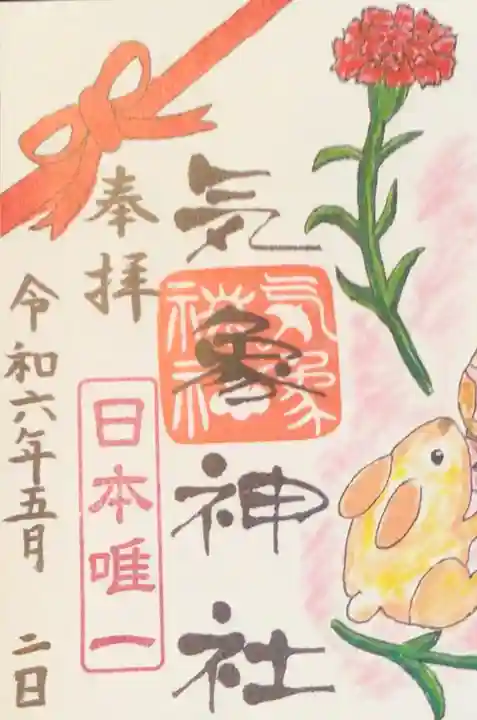 奉拝
気象神社
気象神社
日本唯一
令和六年五月二日